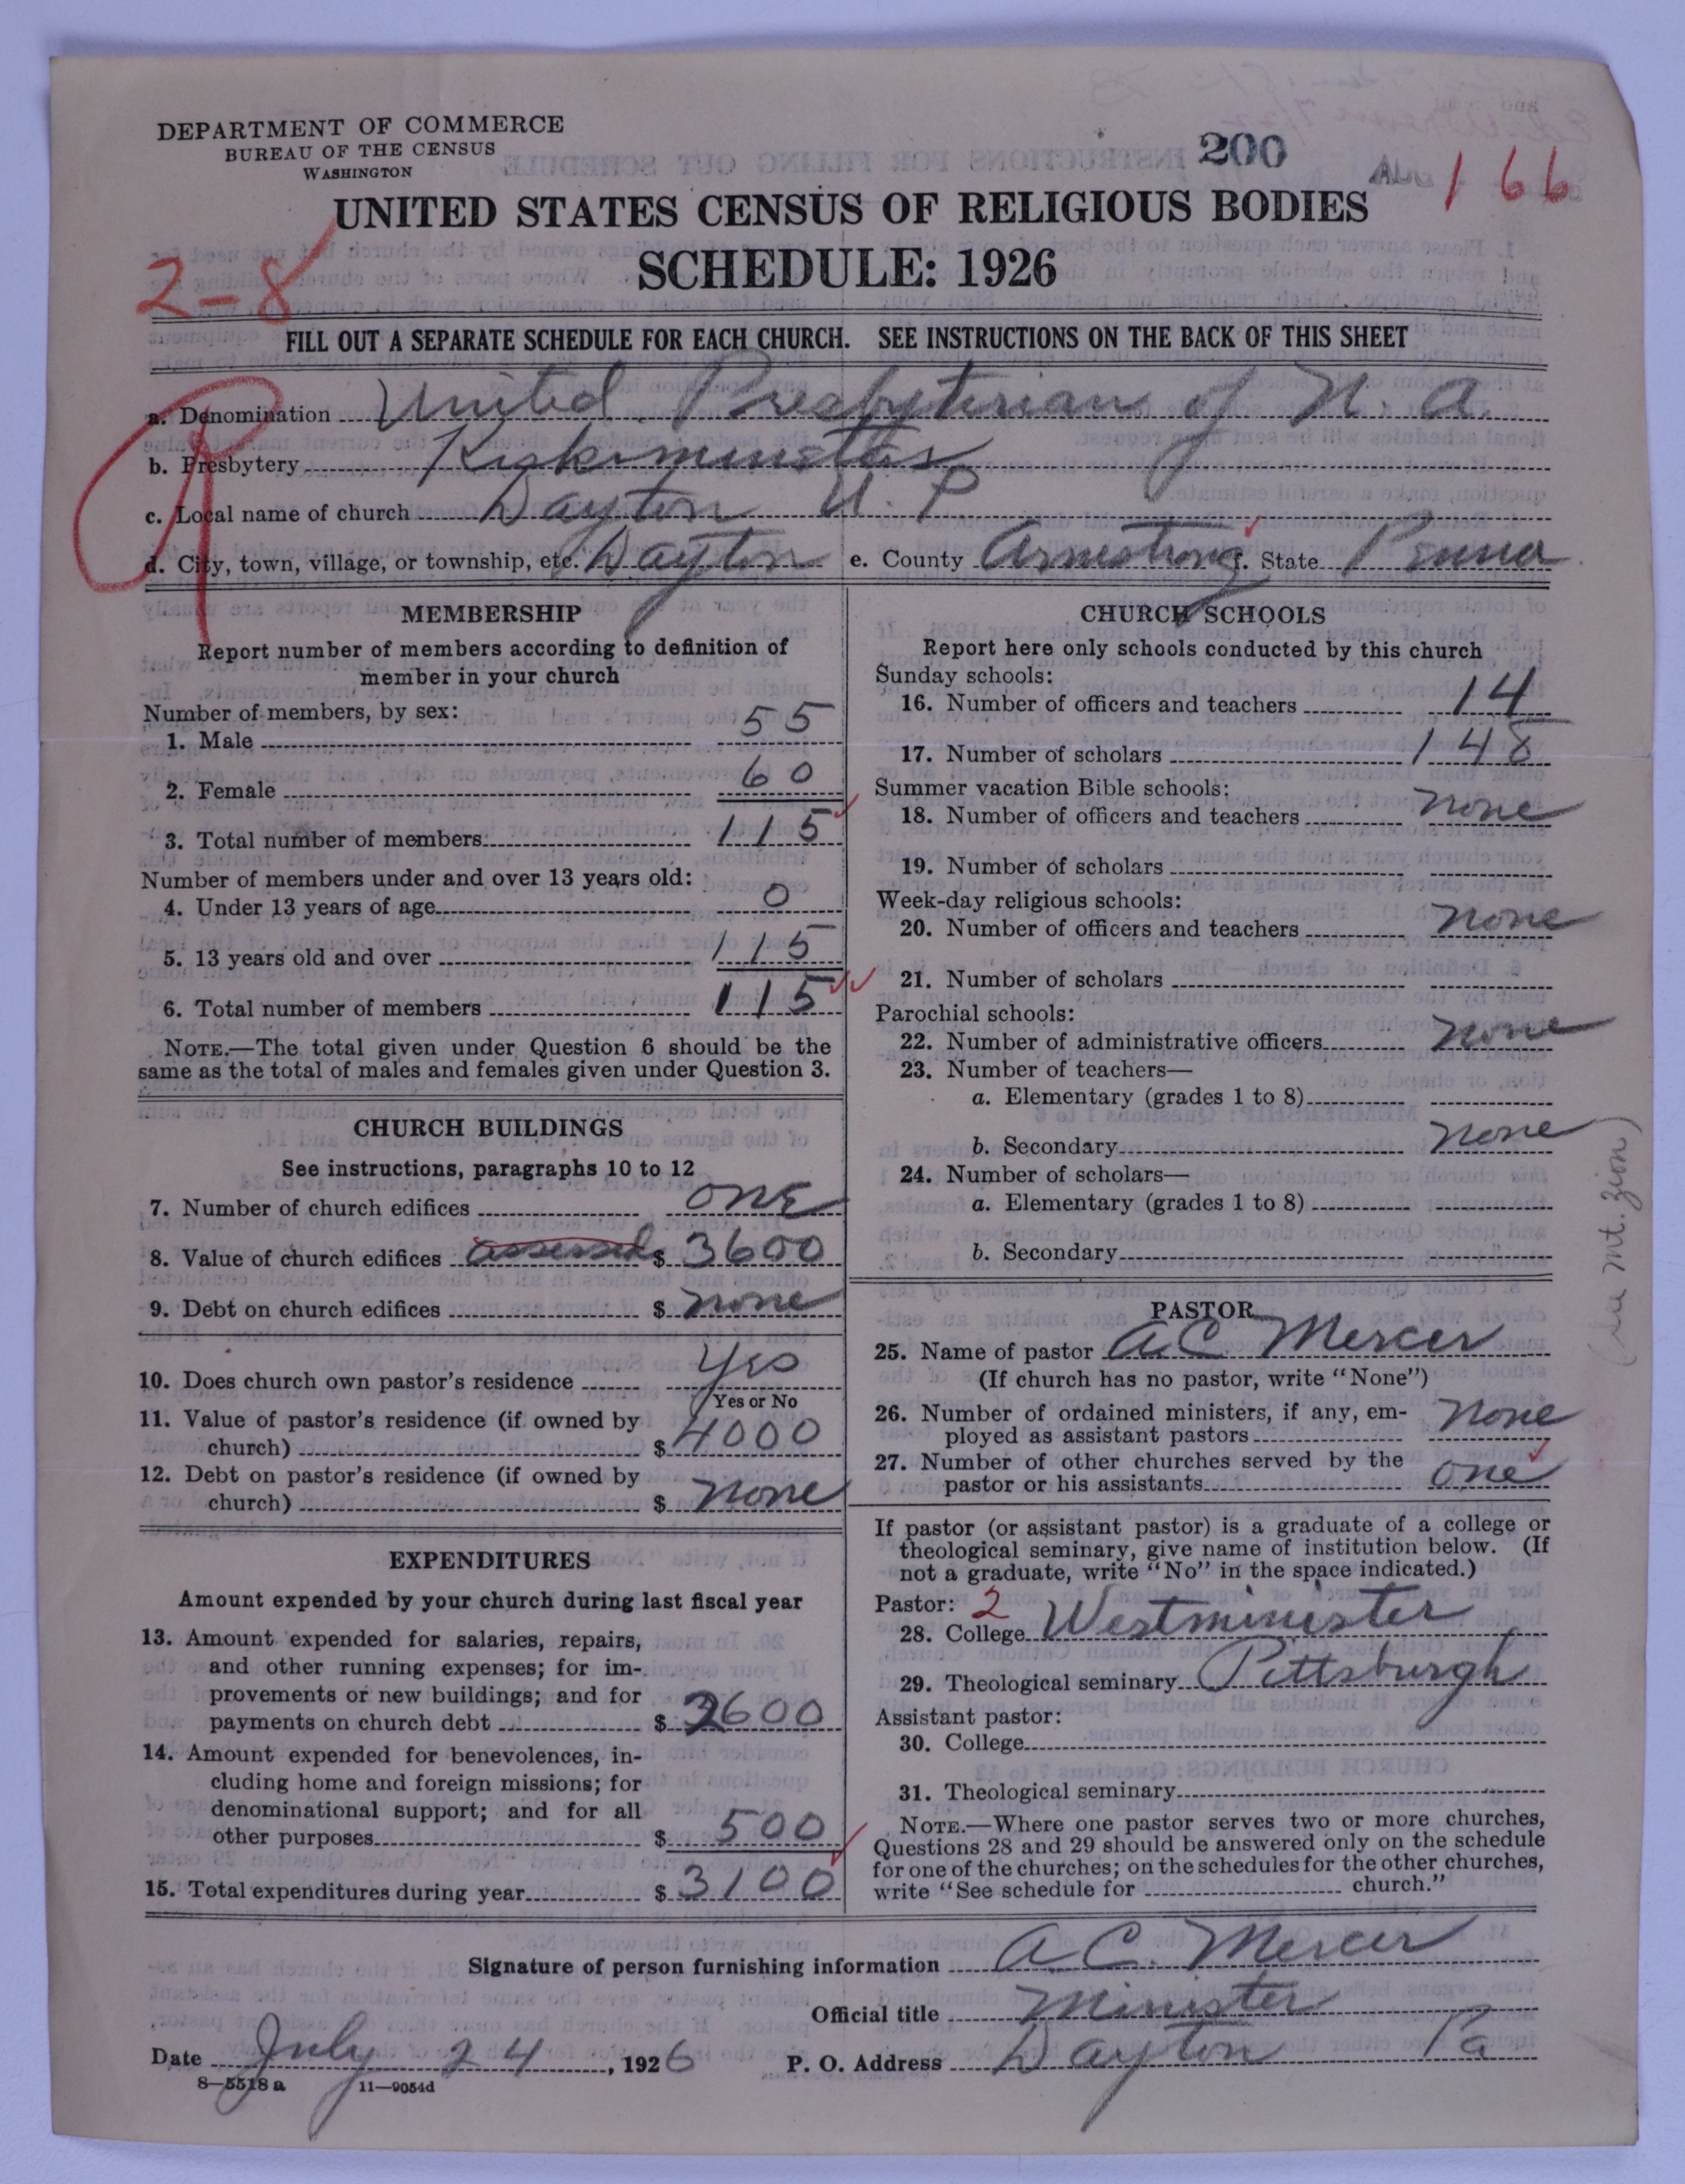 DEPARTMENT OF COMMERCE
BUREAU OF THE CENSUS
WASHINGTON
200
166
UNITED STATES CENSUS OF RELIGIOUS BODIES
SCHEDULE: 1926
2-8
FILL OUT A SEPARATE SCHEDULE FOR EACH CHURCH. SEE INSTRUCTIONS ON THE BACK OF THIS SHEET
a. Denomination United Presbyterian of N. A.
b. Presbytery Kiskiminetas
c. Local name of church Dayton U. P
d. City, town, village, or township, etc. Dayton e. County Armstrong f. State Penna
MEMBERSHIP
Report number of members according to definition of
member in your church
Number of members, by sex:
1. Male 55
2. Female 60
3. Total number of members 115
Number of members under and over 13 years old:
4. Under 13 years of age 0
5. 13 years old and over 115
6. Total number of members 115
NOTE.—The total given under Question 6 should be the
same as the total of males and females given under Question 3.
CHURCH BUILDINGS
See instructions, paragraphs 10 to 12
7. Number of church edifices ONE
8. Value of church edifices assessed $ 3600
9. Debt on church edifices $ none
10. Does church own pastor's residence Yes
Yes or No
11. Value of pastor's residence (if owned by
church) $ 4000
12. Debt on pastor's residence (if owned by
church) $ none
EXPENDITURES
Amount expended by your church during last fiscal year
13. Amount expended for salaries, repairs,
and other running expenses; for im-
provements or new buildings; and for
payments on church debt $ 2600
14. Amount expended for benevolences, in-
cluding home and foreign missions; for
denominational support; and for all
other purposes $ 500
15. Total expenditures during year $ 3100
CHURCH SCHOOLS
Report here only schools conducted by this church
Sunday schools:
16. Number of officers and teachers 14
17. Number of scholars 148
Summer vacation Bible schools:
18. Number of officers and teachers none
19. Number of scholars
Week-day religious schools:
20. Number of officers and teachers none
21. Number of scholars
Parochial schools:
22. Number of administrative officers none
23. Number of teachers—
a. Elementary (grades 1 to 8)
b. Secondary none
24. Number of scholars—
a. Elementary (grades 1 to 8)
b. Secondary
(see Mt. Zion)
PASTOR
25. Name of pastor A C Mercer
(If church has no pastor, write "None")
26. Number of ordained ministers, if any, em-
ployed as assistant pastors none
27. Number of other churches served by the
pastor or his assistants one
If pastor (or assistant pastor) is a graduate of a college or
theological seminary, give name of institution below. (If
not a graduate, write "No" in the space indicated.)
Pastor: 2
28. College Westminister
29. Theological seminary Pittsburgh
Assistant pastor:
30. College
31. Theological seminary
NOTE.—Where one pastor serves two or more churches,
Questions 28 and 29 should be answered only on the schedule
for one of the churches; on the schedules for the other churches,
write "See schedule for church."
Signature of person furnishing information A. C. Mercer
Official title Minister
Date July 24, 1926 P. O. Address Dayton Pa
8—5518 a 11—9054d